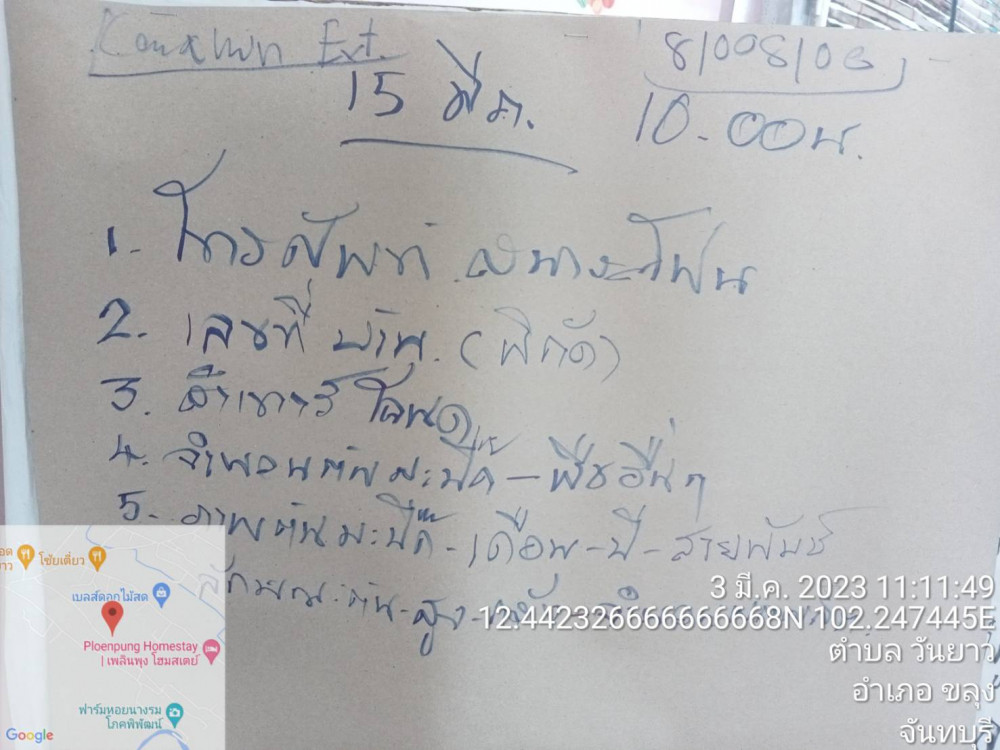 Ext.
8/008/03
15 มี.ค.
10.00น.
1. โทรศัพท์ สมาร์ทโฟน
2. เลขที่ บ้าน. (พิกัด)
3. สำเนา โฉนด
4. จำนวนต้นมะปี๊ด - พืชอื่นๆ
5. ภาพต้นมะปี๊ด - เดือน - ปี - สายพันธุ์
ลักษณะต้น - สูง -
3 มี.ค. 2023 11:11:49
12.442326666666668N 102.247445E
ตำบล วันยาว
อำเภอ ขลุง
จันทบุรี
โชัยเตี่ยว
เบลส์ดอกไม้สด
Ploenpung Homestay
| เพลินพุง โฮมสเตย์
ฟาร์มหอยนางรม
โภคพิพัฒน์
Google